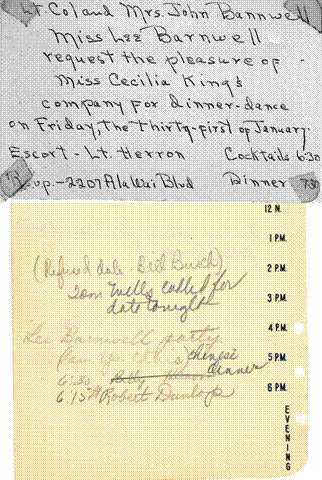 Lt. Col and Mrs. John Bannwell
Miss Lee Barnwell
request the pleasure of
Miss Cecilia King's
company for dinner-dance
on Friday, the thirty-first of January.
Escort - Lt. Herron Cocktails 6:30
R.s.v.p. - 2207 AlaWai Blvd Dinner 7:30
12 N.
1 P.M.
(Refused date - Bill Busch)
2 P.M.
Tom Mells called for
3 P.M.
date tonight
Lee Barnwell party
4 P.M.
Chinese
5 P.M.
dinner
6:30
6 P.M.
6:15 Robert Dunlop
EVENING